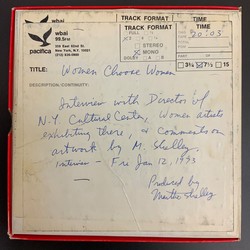 wbai
pacifica
wbai
99.5 FM
359 East 62nd St.
New York, N.Y. 10021
TRACK FORMAT
FULL
STEREO
MONO
DOLBY A B
TRACK FORMAT
TIME
TIME
20:05
3¾ 7½ 15
TITLE: Women Choose Women
DESCRIPTION/CONTINUITY:
Interview with Director of
N.Y. Cultural Center, Women artists
exhibiting there, & comments on
artwork by M. Shelley.
Interview - Fri Jan 12, 1973
Produced by
Martha Shelley